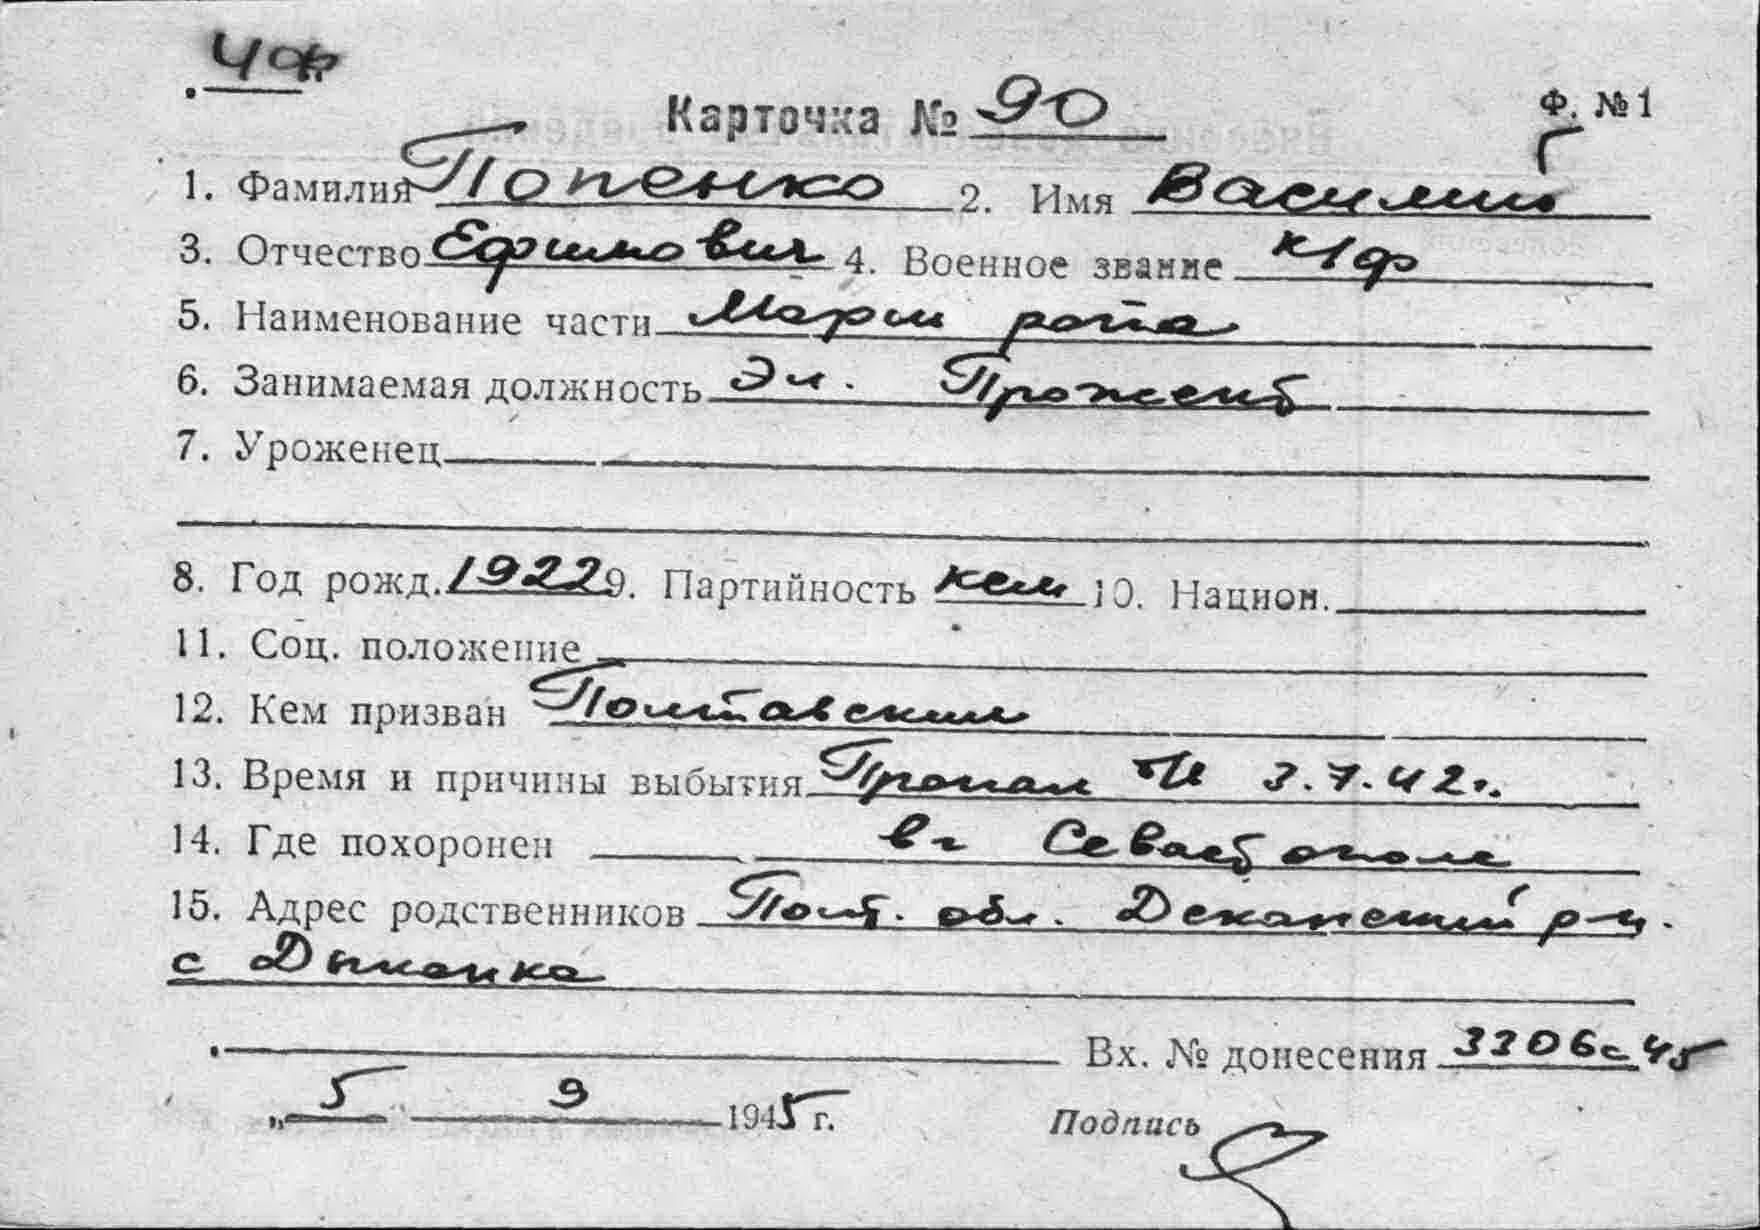 ЧФ
Карточка № 90
Ф. № 1
1. Фамилия Попенко 2. Имя Василий
3. Отчество Ефимович 4. Военное звание к/ф
5. Наименование части Манип рота
6. Занимаемая должность Эл. Прожект
7. Уроженец
8. Год рожд. 1922 9. Партийность 10. Национ.
11. Соц. положение
12. Кем призван Полтавским
13. Время и причины выбытия Пропал 3.7.42г.
14. Где похоронен в г Севастополе
15. Адрес родственников Полт. обл. Деканский р-н.
с Дыканка
Вх. № донесения 3306с 45
„5" 9 1945 г. Подпись